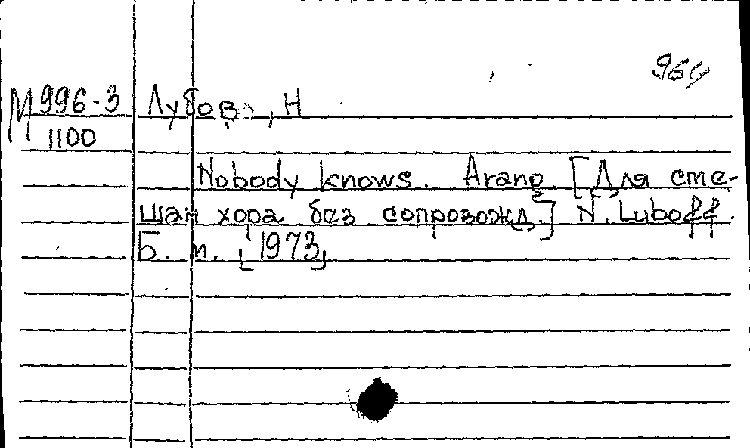 96
М 996-3
1100
Лубов, Н
Nobody knows. Arang. [Для сме-
шан хора без сопровожд.] N. Luboff.
Б. м. [1973]